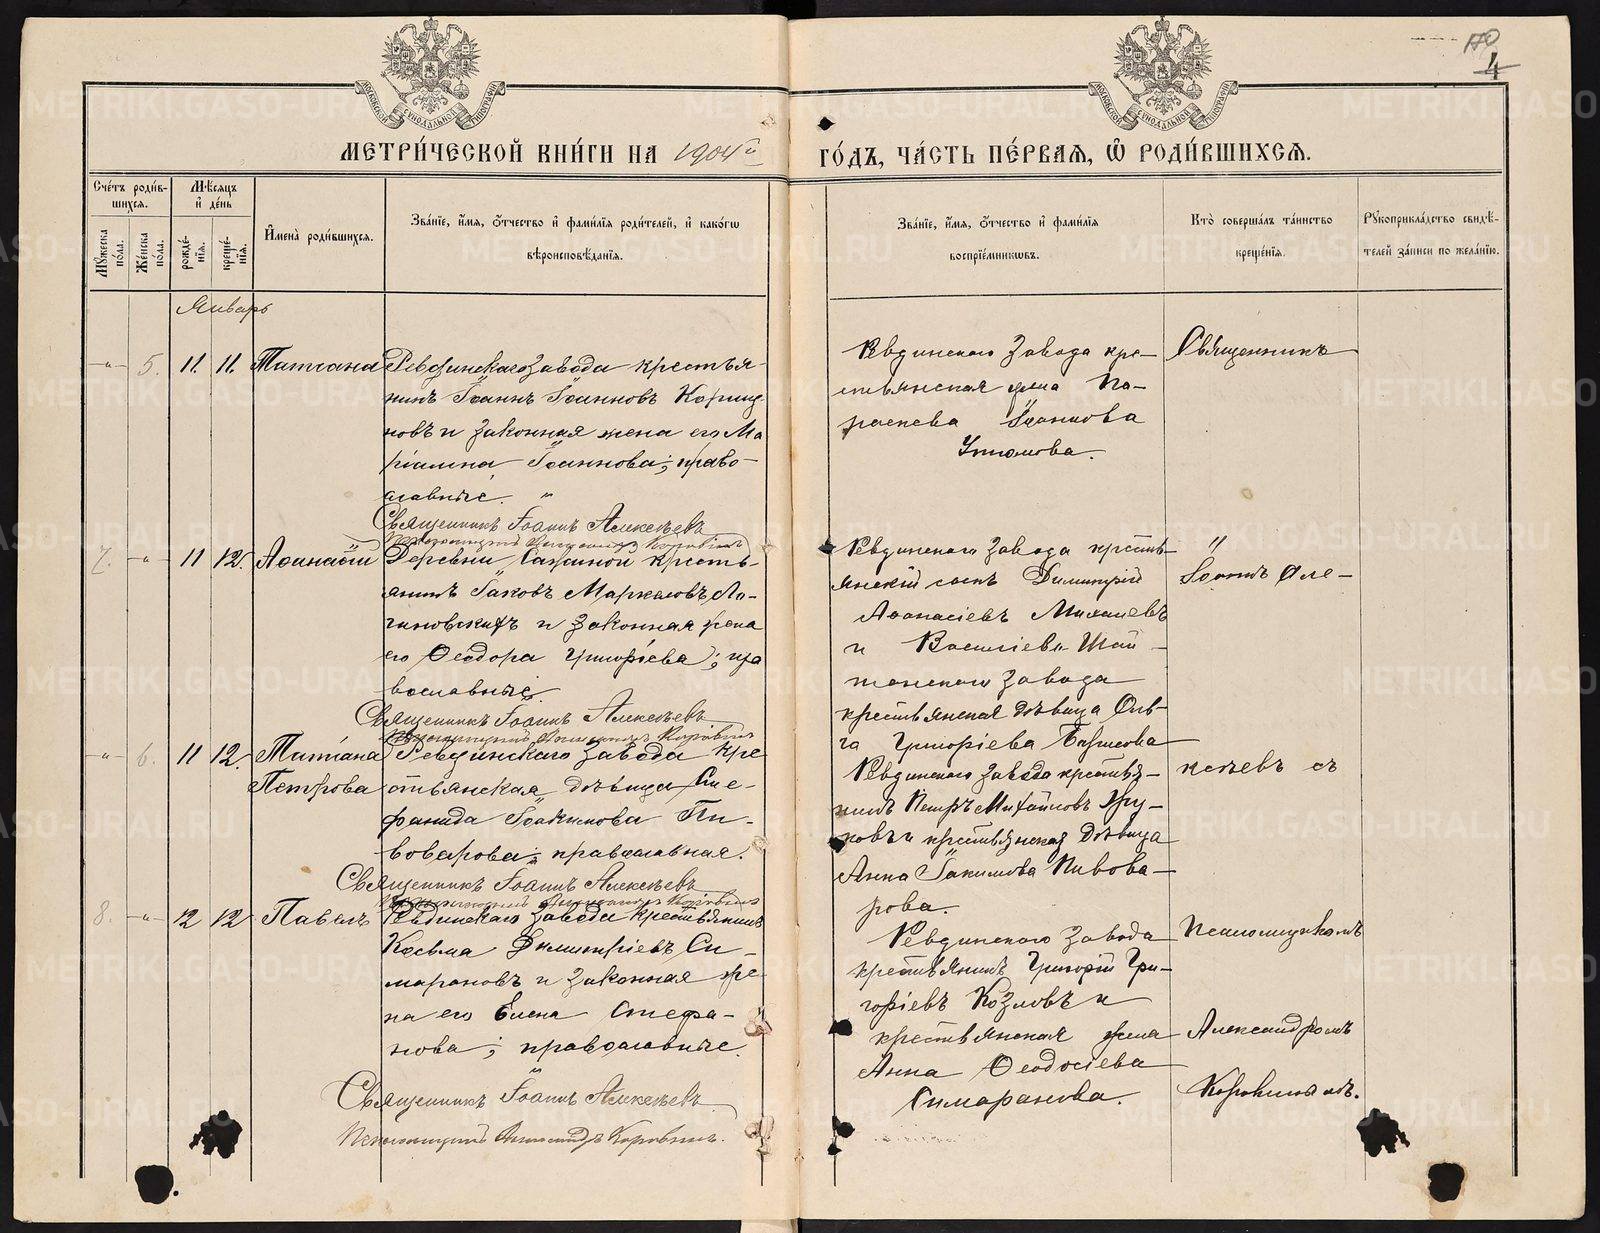 170
4
МЕТРИ́ЧЕСКОЙ КНИ́ГИ НА 1904й
ГО́ДЪ, ЧА́СТЬ ПЕ́РВАЯ, Ѿ РОДИ́ВШИХСЯ.
Сче́тъ роди́в-
шихся.
Мꙋ́жеска по́ла.
Же́нска по́ла.
Мѣ́сяцъ
и де́нь
рожде́-
нїя.
креще́-
нїя.
И҆мена̀ роди́вшихся.
Зва́нїе, и҆́мя, ѻ҆́тчество и҆ фами́лїя роди́телей, и҆ како́гѡ
вѣроисповѣ́данїя.
Зва́нїе, и҆́мя, ѻ҆́тчество и҆ фами́лїя
воспрїе́мникѡвъ.
Кто̀ соверша́лъ та́инство
креще́нїя.
Рꙋкоприкла́дство свидѣ́-
телей за́писи по жела́нїю.
Январь
-"- 5. 11. 11. Татіана
Ревдинскаго завода крестья-
нинъ Іоаннъ Іоанновъ
новъ и законная жена его Ма
ріамна Іоаннова; право-
славные.
Священникъ Іоаннъ Алексѣевъ
Псаломщикъ Александръ Коровинъ
Ревдинскаго завода кре-
стьянская жена Па-
раскева Іоаннова
Священникъ
7. -"- 11 12. Аѳанасій
Деревни крестья-
янинъ Іаковъ Маркеловъ Ло-
гиновскихъ и законная жена
его Ѳеодора Григоріева; пра
вославные.
Священникъ Іоаннъ Алексѣевъ
Псаломщикъ Александръ Коровинъ
Ревдинскаго завода кресть-
янскій сынъ Димитрій
Аѳанасіевъ Михалевъ
и Васильево-Шай-
танскаго завода
крестьянская дѣвица Оль-
га Григоріева
"
Іоаннъ Але-
-"- 6. 11 12. Татіана
Петрова
Ревдинскаго завода кре
стьянская дѣвица Сте-
фанида Іоакимова Пи-
воварова; православная.
Священникъ Іоаннъ Алексѣевъ
Псаломщикъ Александръ Коровинъ
Ревдинскаго завода крестья-
нинъ Петръ Михайловъ
и крестьянская дѣвица
Анна Іакимова Пивова-
рова.
ксѣевъ съ
8. -"- 12 12 Павелъ
Ревдинскаго завода крестьянинъ
Косьма Димитріевъ Си-
марановъ и законная же
на его Елена Стефа-
нова; православные.
Священникъ Іоаннъ Алексѣевъ
Псаломщикъ Александръ Коровинъ.
Ревдинскаго завода
крестьянинъ Григорій Гри-
горіевъ Козловъ и
крестьянская жена
Анна Ѳеодосіева
Симаранова.
Псаломщикомъ
Александромъ
Коровинымъ.